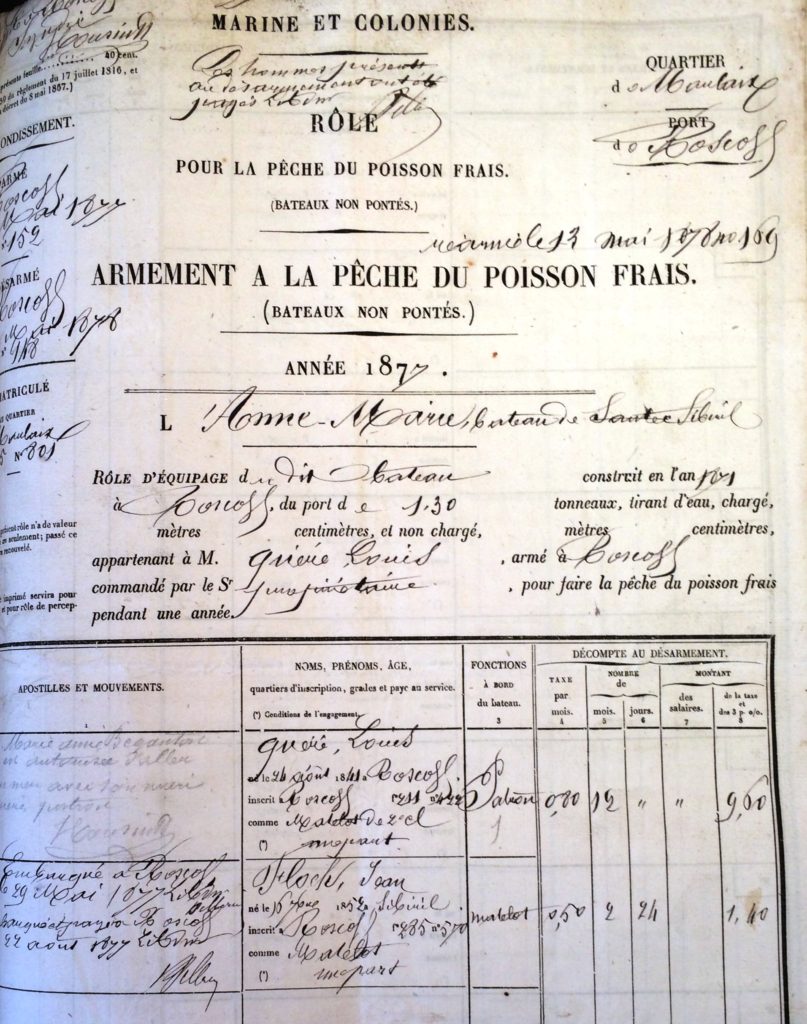 MARINE ET COLONIES.
Les hommes présents
au désarmement ont été
QUARTIER
de Morlaix
PORT
de Roscoff
RÔLE
POUR LA PÊCHE DU POISSON FRAIS.
(BATEAUX NON PONTÉS.)
réarmé le 13 mai 1878 no 169
ARMEMENT A LA PÊCHE DU POISSON FRAIS.
(BATEAUX NON PONTÉS.)
ANNÉE 1877.
L'Anne-Marie, bateau de Santec Sibiril
RÔLE D'ÉQUIPAGE du dit bateau construit en l'an 1871
à Roscoff, du port de 1,30 tonneaux, tirant d'eau, chargé,
mètres centimètres, et non chargé, mètres centimètres,
appartenant à M. Quéré Louis, armé à Roscoff
commandé par le Sr propriétaire, pour faire la pêche du poisson frais
pendant une année.
40 cent.
présente feuille
du règlement du 17 juillet 1816, et
décret du 8 mai 1867.)
ONDISSEMENT.
ARMÉ
Roscoff
Mai 1877
152
SARMÉ
Roscoff
Mai 1878
948
MATRICULÉ
QUARTIER
Morlaix
No 801
présent rôle n'a de valeur
seulement; passé ce
renouvelé.
imprimé servira pour
et pour rôle de percep-
APOSTILLES ET MOUVEMENTS.
1
NOMS, PRÉNOMS, ÂGE,
quartiers d'inscription, grades et paye au service.
(*) Conditions de l'engagement.
FONCTIONS
À BORD
du bateau.
3
DÉCOMPTE AU DÉSARMEMENT.
TAXE
par
mois.
4
NOMBRE
de
mois.
5
jours.
6
MONTANT
des
salaires.
7
de la taxe
et
des 3 p. o/o.
8
Marie anne
est autorisée à aller
en mer avec son mari
Quéré, Louis
né le 24 août 1841 à Roscoff
inscrit à Roscoff fo 211 no 422
comme Matelot de 2e cl
(*) une part
Patron 0,80 12 " " 9,60
Embarqué à Roscoff
le 29 Mai 1877
Roscoff
22 août 1877
Floch, Jean
né le 15 1852 à Sibiril
inscrit à Roscoff fo 285 no 570
comme Matelot
(*) une part
matelot 0,50 2 24 1,40